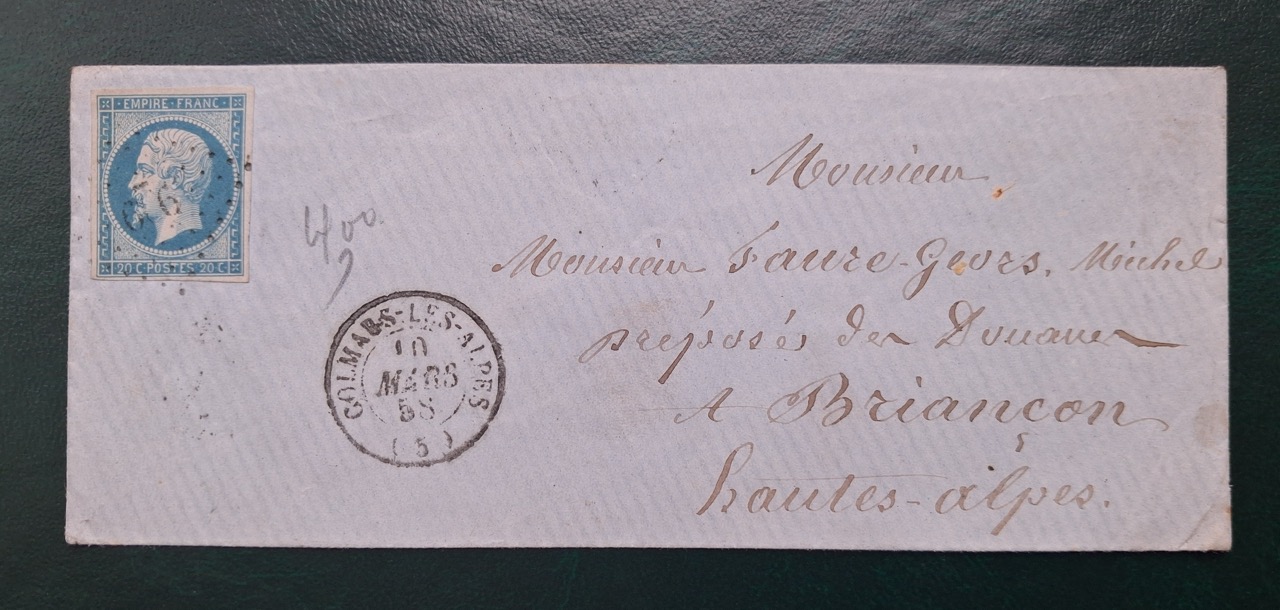 EMPIRE · FRANC ·
20 C · POSTES · 20 C ·
400
COLMARS-LES-ALPES
10
MARS
58
(5)
Monsieur
Monsieur Faure-Geors, Michel
préposés des Douanes
A Briançon
hautes-alpes.